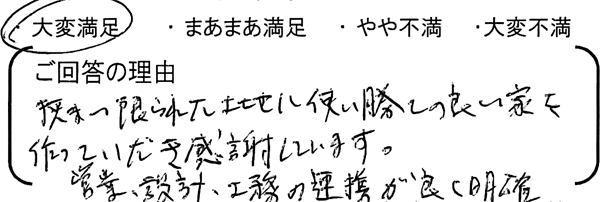 ・大変満足 ・まあまあ満足 ・やや不満 ・大変不満
ご回答の理由
狭まつ限られた土地に使い勝ての良い家を
作っていただき感謝しています。
営業、設計、工務の連携が良く明確